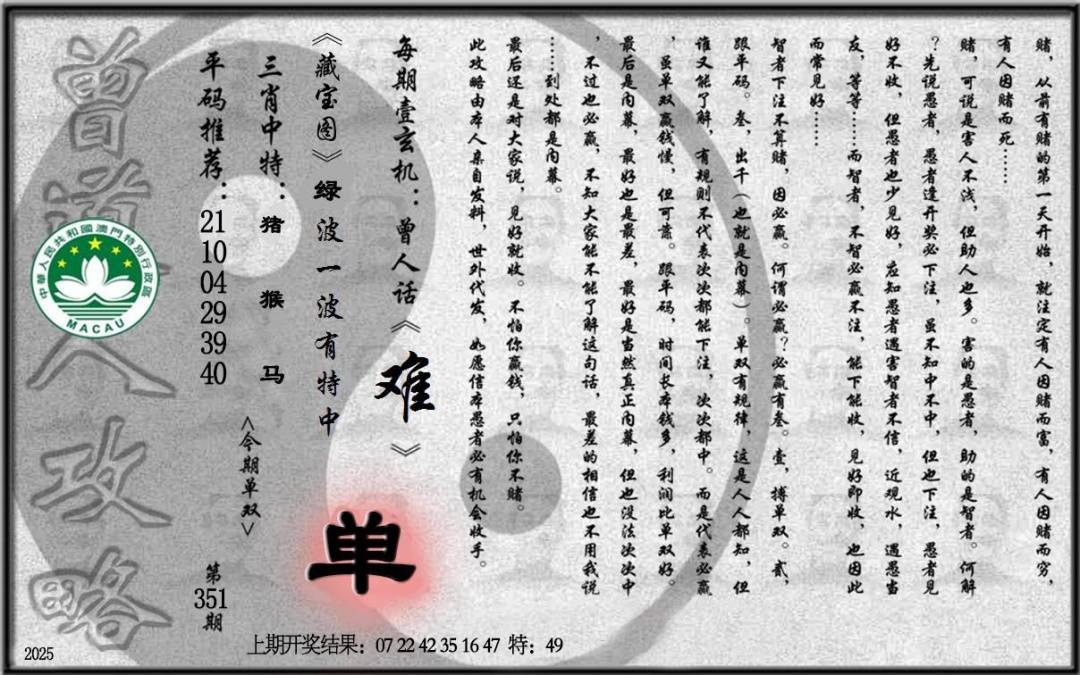 赌，从前有赌的第一天开始，就注定有人因赌而富，有人因赌而穷，
有人因赌而死……
赌，可说是害人不浅，但助人也多。害的是愚者，助的是智者。何解
？先说愚者，愚者逢开奖必下注，虽不知中不中，但也下注，愚者见
好不收，但愚者也少见好，应知愚者遇害智者不信，近观水，遇愚当
友，等等……而智者，不智必赢不注，能下能收，见好即收，也因此
而常见好……
智者下注不算赌，因必赢。何谓必赢？必赢有叁。壹，搏单双。贰，
跟平码。叁，出千（也就是内幕）。单双有规律，这是人人都知，但
谁又能了解，有规则不代表次次都能下注，次次都中。而是代表必赢
，虽单双赢钱慢，但可靠。跟平码，时间长本钱多，利润比单双好。
最后是内幕，最好也是最差，最好是当然真正内幕，但也没法次次中
，不过也必赢，不知大家能不能了解这句话，最差的相信也不用我说
……到处都是内幕。
最后还是对大家说，见好就收。不怕你赢钱，只怕你不赌。
此攻略由本人亲自发料，世外代发，如愿信本愚者必有机会收手。
每期壹玄机：曾人话《难》
《藏宝图》绿波一波有特中
单
三肖中特：猪 猴 马
<今期单双>
平码推荐：21 10 04 29 39 40
第351期
曾道人攻略
中華人民共和國澳門特別行政區
MACAU
上期开奖结果：07 22 42 35 16 47 特：49
2025